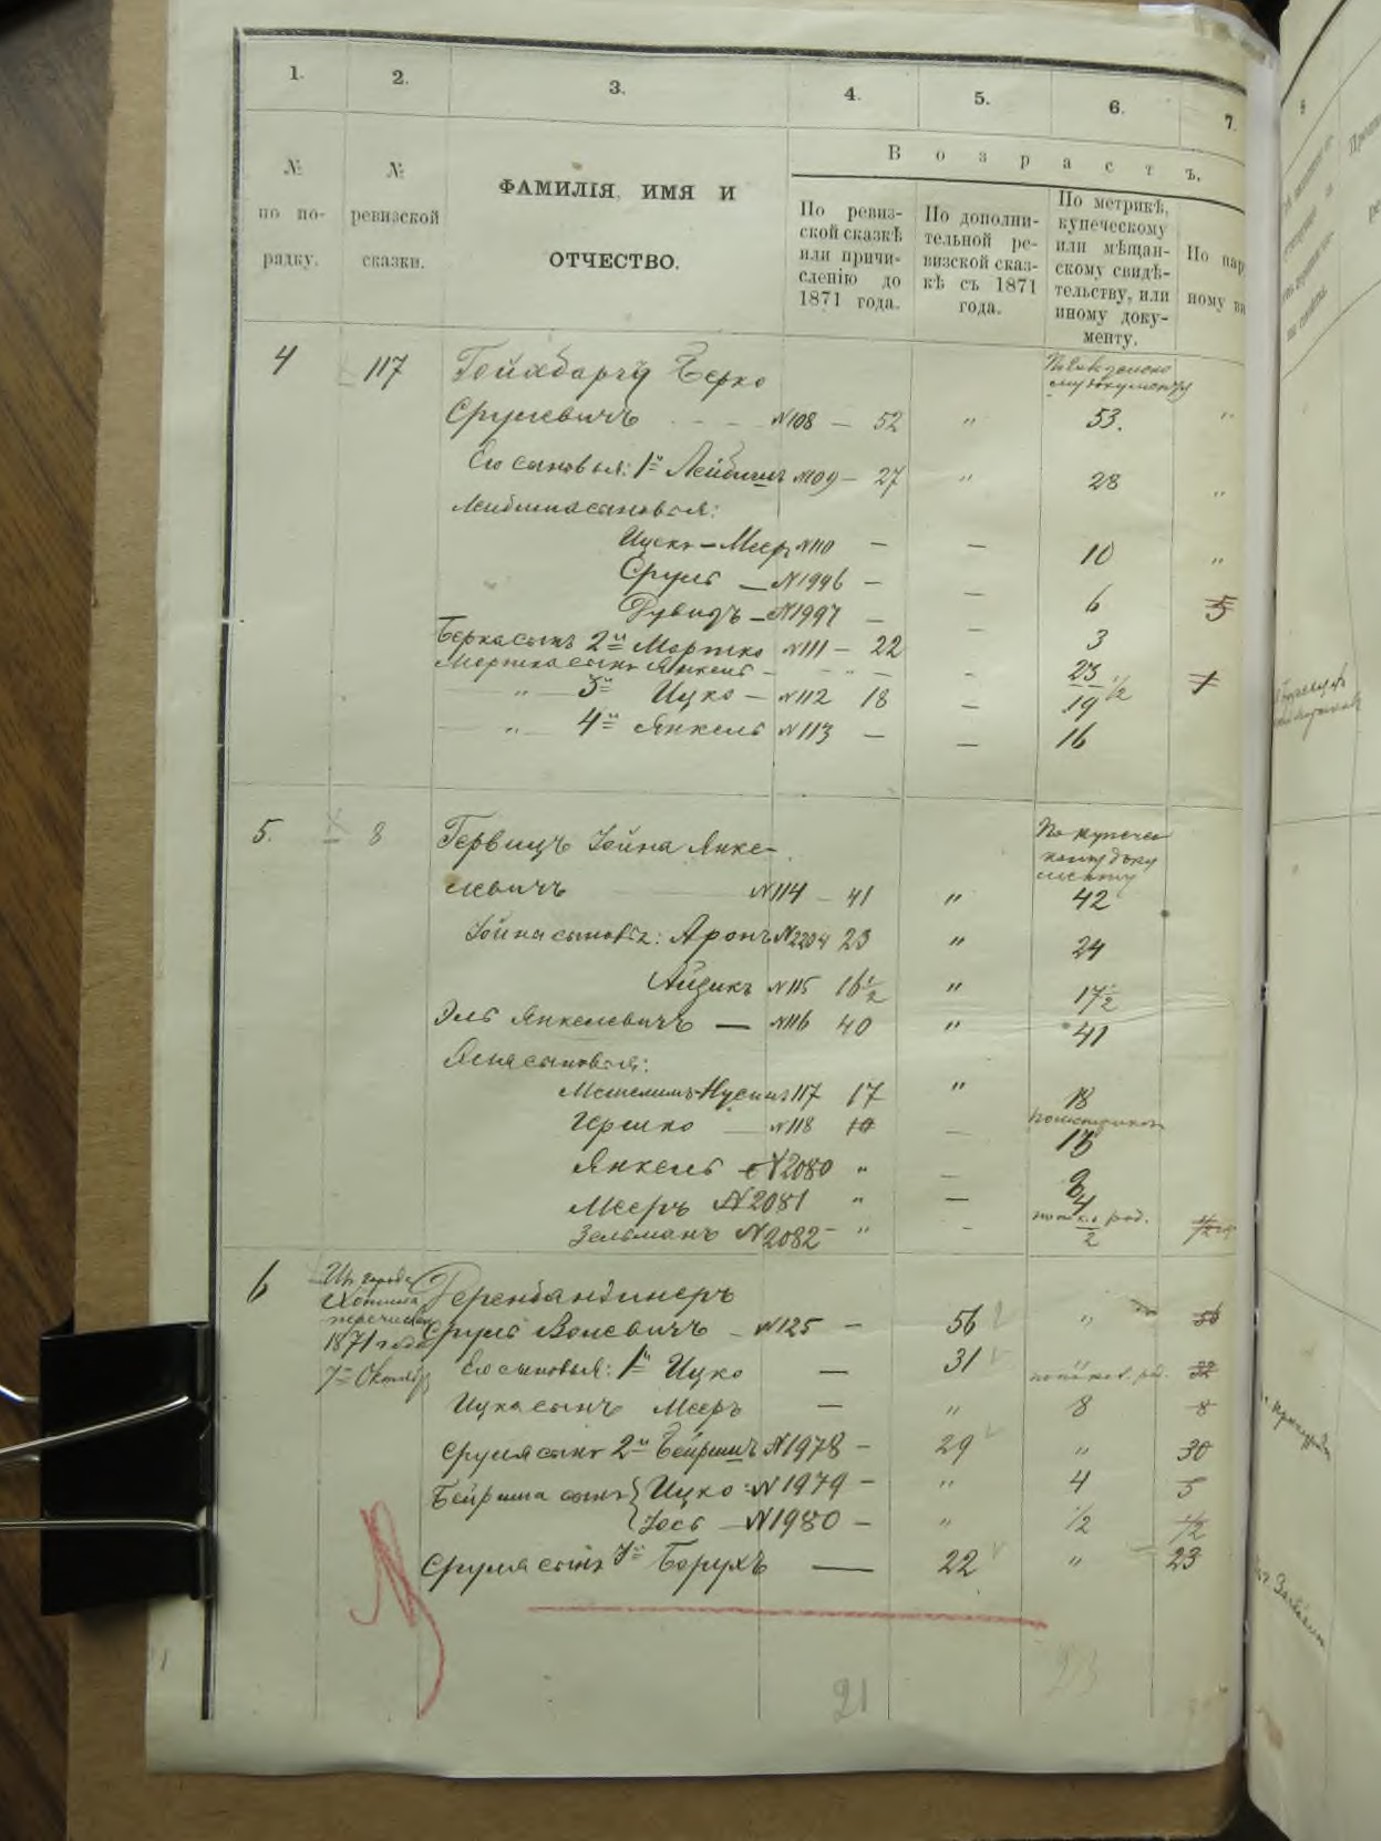 1. 2. 3. 4. 5. 6. 7. 8
В о з р а с т ъ.
№ по по- рядку.
№ ревизской сказки.
ФАМИЛІЯ, ИМЯ И
ОТЧЕСТВО.
По ревиз-
ской сказкѣ
или причи-
сленію до
1871 года.
По дополни-
тельной ре-
визской сказ-
кѣ съ 1871
года.
По метрикѣ,
купеческому
или мѣщан-
скому свидѣ-
тельству, или
иному доку-
менту.
По нар
ному
4 117 Гойхбаргъ Берко
Срулевичъ № 108 — 52 " 53. "
Его сыновья: 1й Лейбишъ № 109 — 27 " 28 "
Лейбиша сыновья:
Ицко — Мееръ № 110 — — 10 "
Сруль — № 1996 — — 6 5
Дувидъ — № 1997 — — 3
Берка сынъ 2й Мортко № 111 — 22 - 23
Мортка сынъ Янкель — — 1/2 1
" 3й Ицко — № 112 18 — 19
" 4й Янкель № 113 — — 16
5. 8 Гервицъ Іойна Янке-
левичъ № 114 — 41 " 42
По купечес
кому доку
менту
Іойна сыновья: Аронъ № 2204 23 " 24
Айзикъ № 115 16 1/2 " 17 1/2
Эль Янкелевичъ — № 116 40 " 41
Эля сыновья:
Нусинъ 117 17 " 18
Гершко — № 118 10 — 13
Янкель № 2080 " —
Мееръ № 2081 " — 4
Зельманъ № 2082 - " -
6 Изъ города
Хотина
перечислен
1871 года
7 Октября
Ференбандинеръ
Сруль Волевичъ — № 125 — 56 "
Его сыновья: 1й Ицко — 31 32
Ицка сынъ Мееръ — " 8 8
Сруля сынъ 2й Бейришъ № 1978 — 29 " 30
Бейриша сынъ Ицко № 1979 — " 4 5
Іось — № 1980 — " 1/2 1/2
Сруля сынъ 3й Борухъ — 22 " 23
21 23